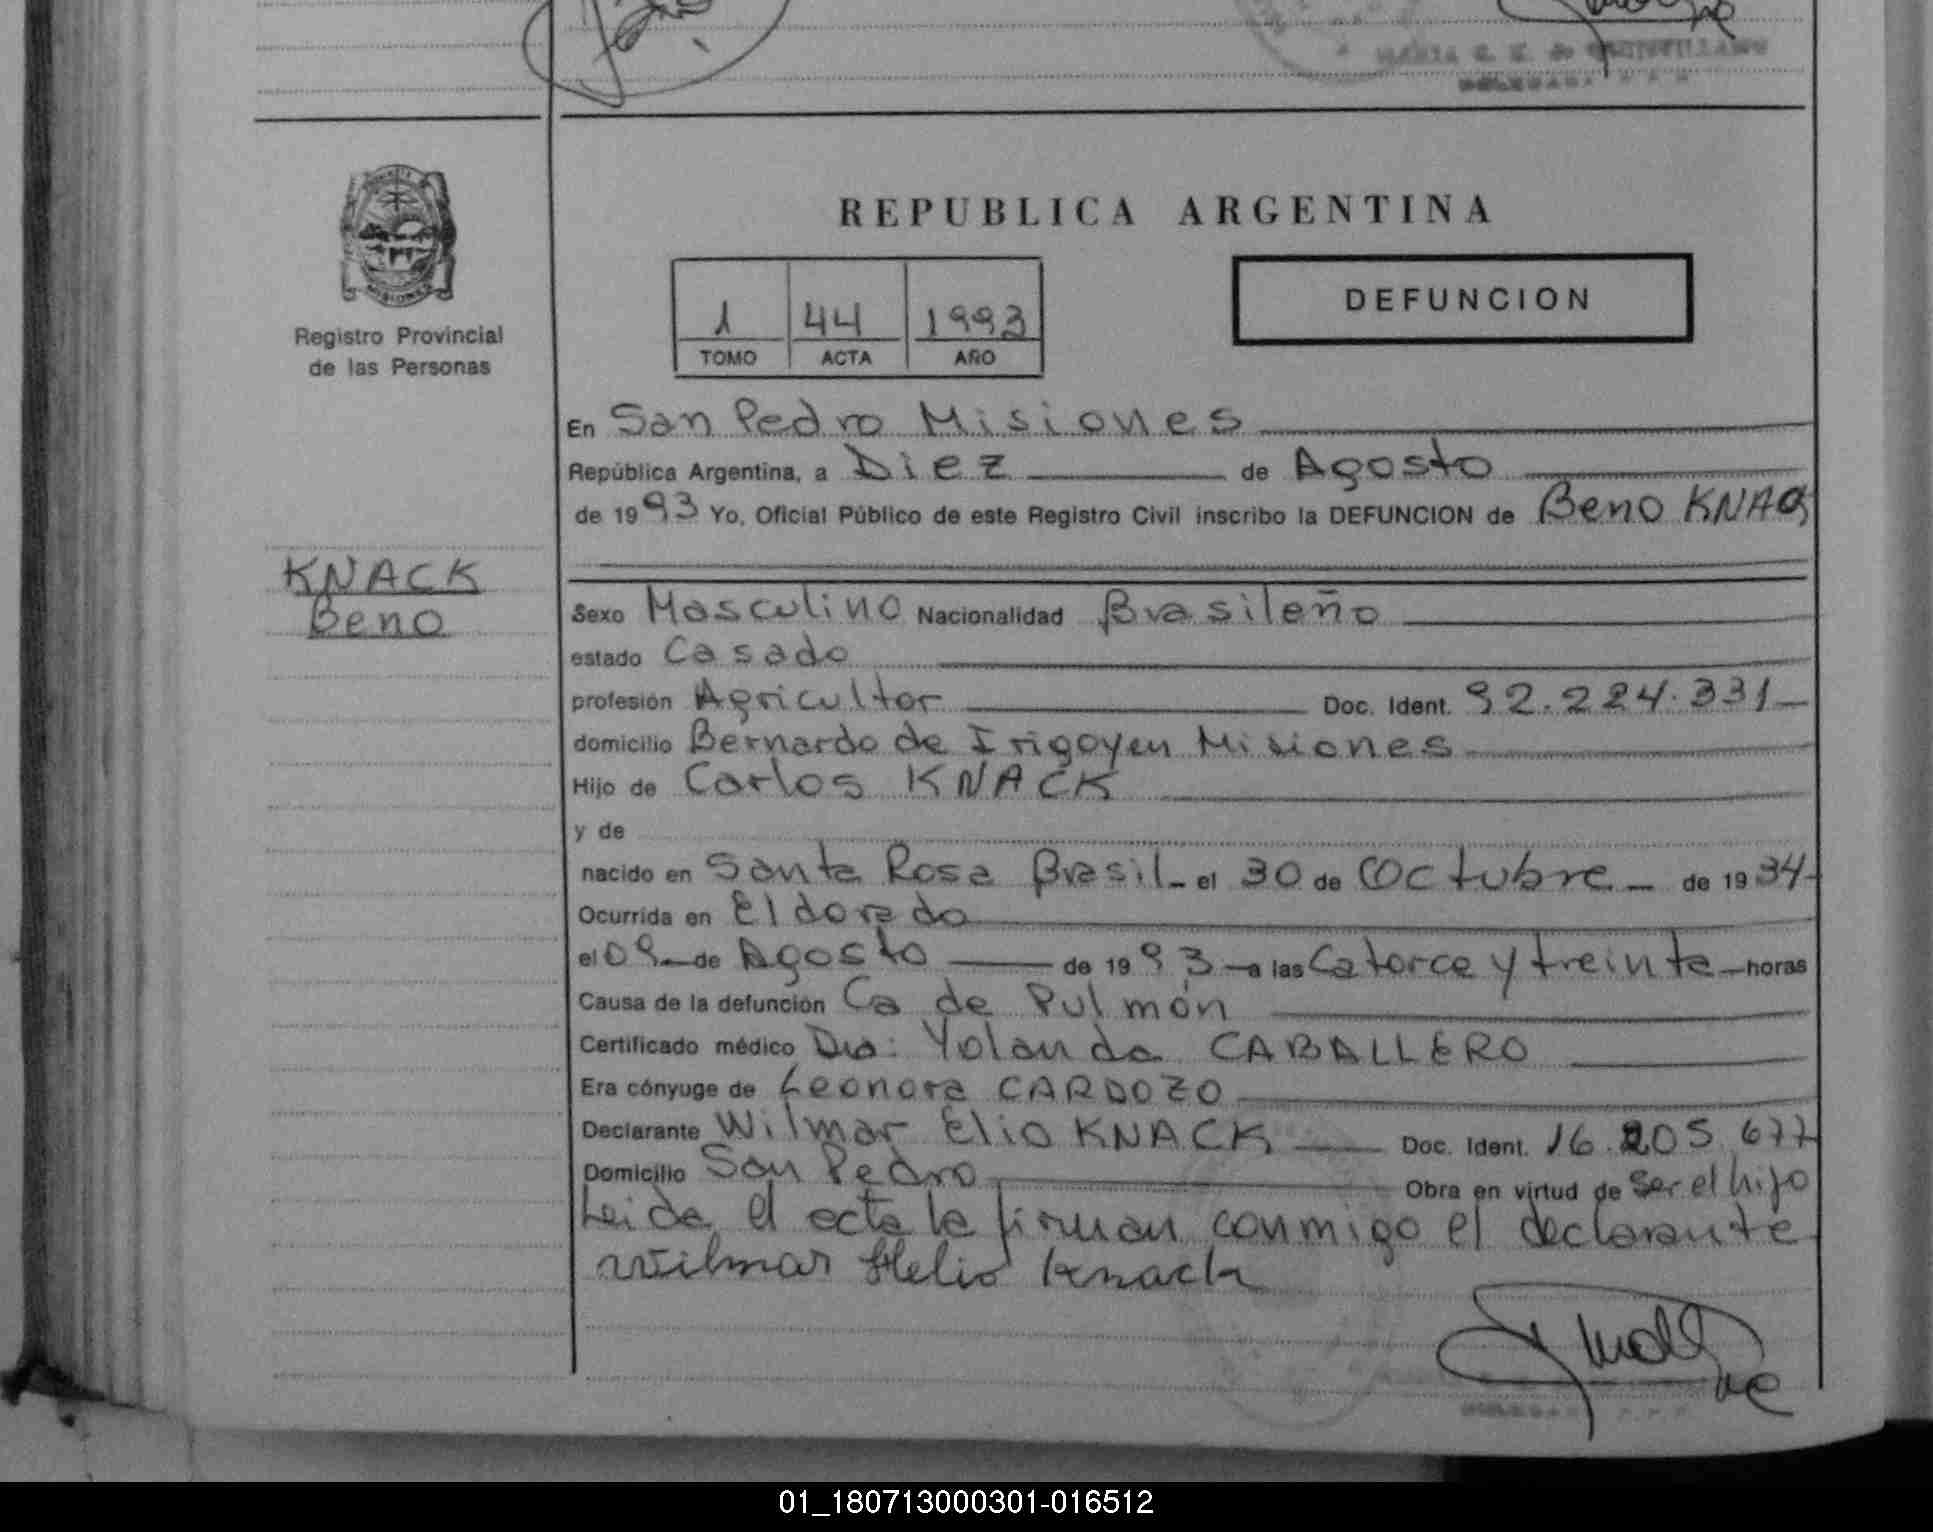 REPUBLICA ARGENTINA
Registro Provincial
de las Personas
MISIONES
1 44 1993
TOMO ACTA AÑO
DEFUNCION
En San Pedro Misiones
República Argentina, a Diez de Agosto
de 1993 Yo, Oficial Público de este Registro Civil inscribo la DEFUNCION de Beno KNACK
KNACK
Beno
Sexo Masculino Nacionalidad Brasileño
estado Casado
profesión Agricultor Doc. Ident. 92.224.331
domicilio Bernardo de Irigoyen Misiones
Hijo de Carlos KNACK
y de
nacido en Santa Rosa Brasil - el 30 de Octubre - de 1934-
Ocurrida en Eldorado
el 09 de Agosto de 1993 a las Catorce y treinta horas
Causa de la defunción Ca de Pulmón
Certificado médico Dra: Yolanda CABALLERO
Era cónyuge de Leonora CARDOZO
Declarante Wilmar Elio KNACK Doc. Ident. 16.205.677
Domicilio San Pedro Obra en virtud de Ser el hijo
Leida el acta la firman conmigo el declarante
Wilmar Helio Knack
01_180713000301-016512